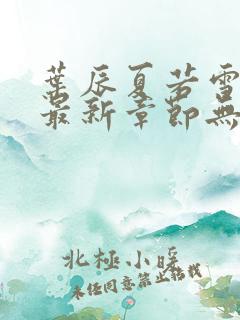 葉辰夏若雪
最新章節無
北極小暖
未經同意禁止轉載